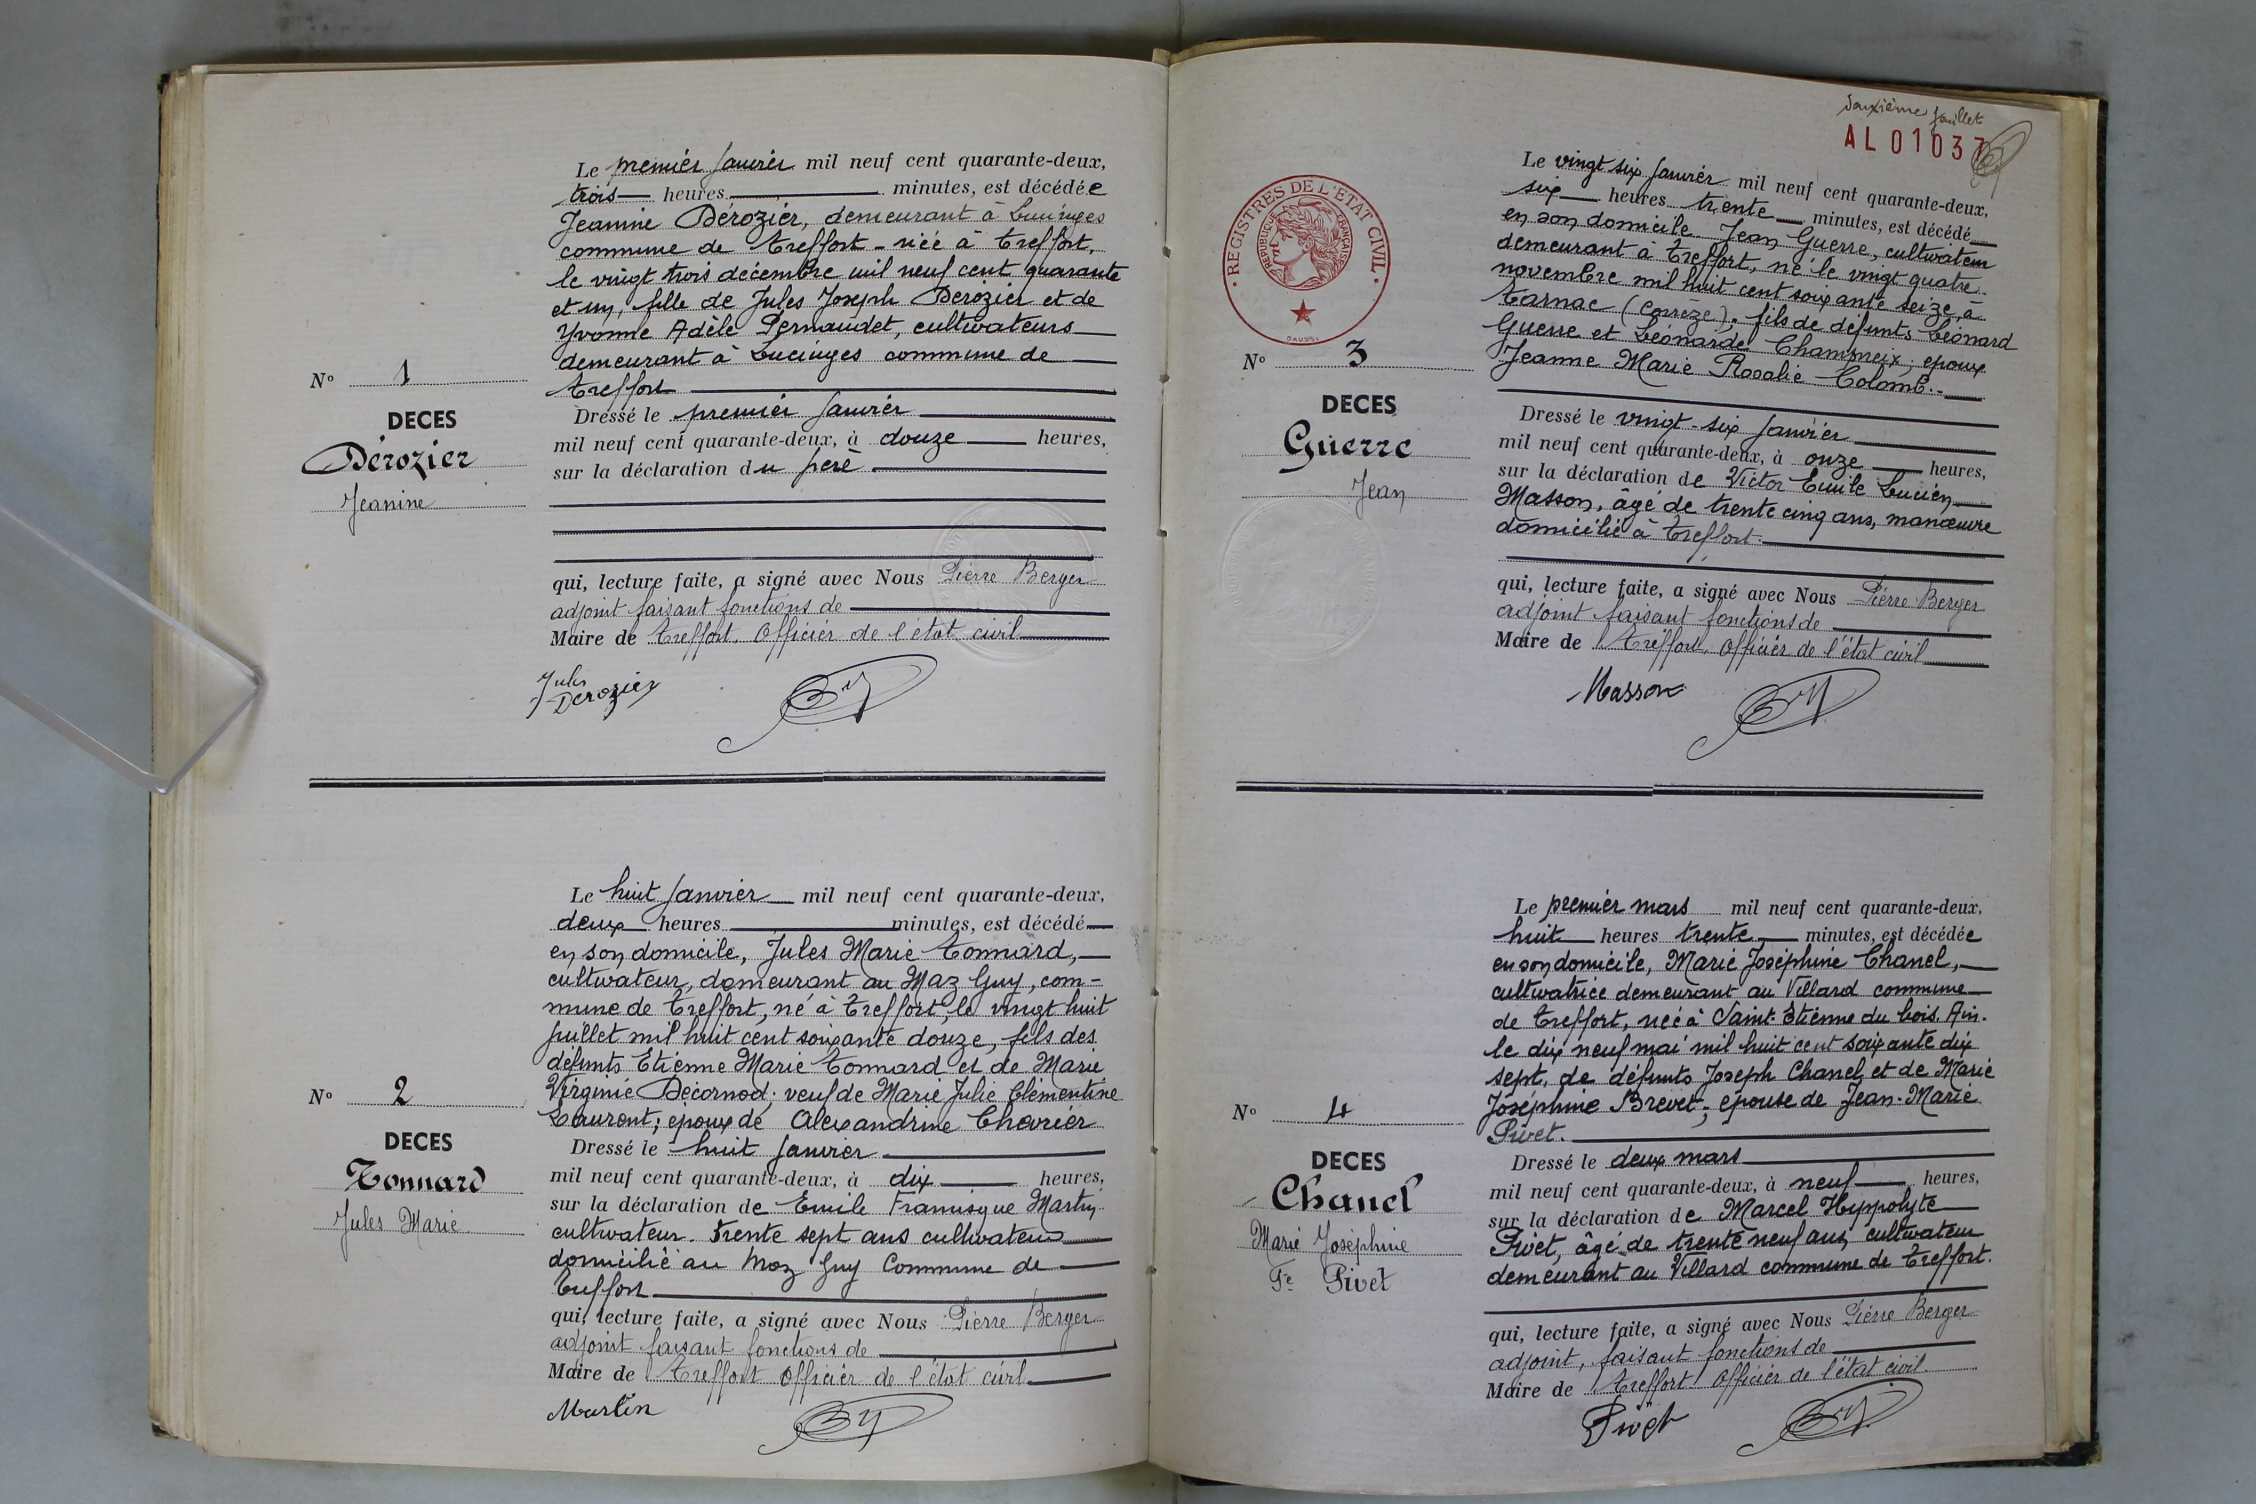 Le premier Janvier mil neuf cent quarante-deux,
trois heures minutes, est décédée
Jeanine Dérozier, demeurant à Lucinges
commune de Treffort - née à Treffort,
le vingt trois décembre mil neuf cent quarante
et un, fille de Jules Joseph Dérozier et de
Yvonne Adèle Pernaudet, cultivateurs
demeurant à Lucinges commune de
Treffort
N° 1
DECES
Dérozier
Jeanine
Dressé le premier Janvier
mil neuf cent quarante-deux, à douze heures,
sur la déclaration du père
qui, lecture faite, a signé avec Nous Pierre Berger
adjoint faisant fonctions de
Maire de Treffort. Officier de l'état civil
Jules
Derozier
Le huit Janvier mil neuf cent quarante-deux,
deux heures minutes, est décédé
en son domicile, Jules Marie Tonnard,
cultivateur, demeurant au Maz Guy, com-
mune de Treffort, né à Treffort, le vingt huit
Juillet mil huit cent soixante douze, fils des
défunts Etienne Marie Tonnard et de Marie
Virginie Décornod; veuf de Marie Julie Clémentine
Laurent; époux de Alexandrine Chevrier
N° 2
DECES
Tonnard
Jules Marie
Dressé le huit Janvier
mil neuf cent quarante-deux, à dix heures,
sur la déclaration de Emile Franisque Martin
cultivateur. Trente sept ans cultivateur
domicilié au Maz Guy Commune de
Treffort
qui, lecture faite, a signé avec Nous Pierre Berger
adjoint faisant fonctions de
Maire de Treffort Officier de l'état civil
Martin
deuxième feuillet
AL 01037
REGISTRES DE L'ETAT CIVIL
REPUBLIQUE FRANÇAISE
Le vingt six Janvier mil neuf cent quarante-deux,
six heures trente minutes, est décédé
en son domicile Jean Guerre, cultivateur
demeurant à Treffort, né le vingt quatre
novembre mil huit cent soixante seize, à
Tarnac (Corrèze), fils de défunts Léonard
Guerre et Léonarde Chammeix; époux
Jeanne Marie Rosalie Colomb.
N° 3
DECES
Guerre
Jean
Dressé le vingt-six Janvier
mil neuf cent quarante-deux, à onze heures,
sur la déclaration de Victor Emile Lucien
Masson, âgé de trente cinq ans, manœuvre
domicilié à Treffort.
qui, lecture faite, a signé avec Nous Pierre Berger
adjoint faisant fonctions de
Maire de Treffort, Officier de l'état civil
Masson
Le premier mars mil neuf cent quarante-deux,
huit heures trente minutes, est décédée
en son domicile, Marie Joséphine Chanel,
cultivatrice demeurant au Villard commune
de Treffort, née à Saint-Etienne du bois. Ain.
le dix neuf mai mil huit cent soixante dix
sept, de défunts Joseph Chanel et de Marie
Joséphine Brevet; épouse de Jean-Marie
Pivet.
N° 4
DECES
Chanel
Marie Joséphine
Fe Pivet
Dressé le deux mars
mil neuf cent quarante-deux, à neuf heures,
sur la déclaration de Marcel Hippolyte
Pivet, âgé de trente neuf ans, cultivateur
demeurant au Villard commune de Treffort.
qui, lecture faite, a signé avec Nous Pierre Berger
adjoint, faisant fonctions de
Maire de Treffort Officier de l'état civil
Pivet